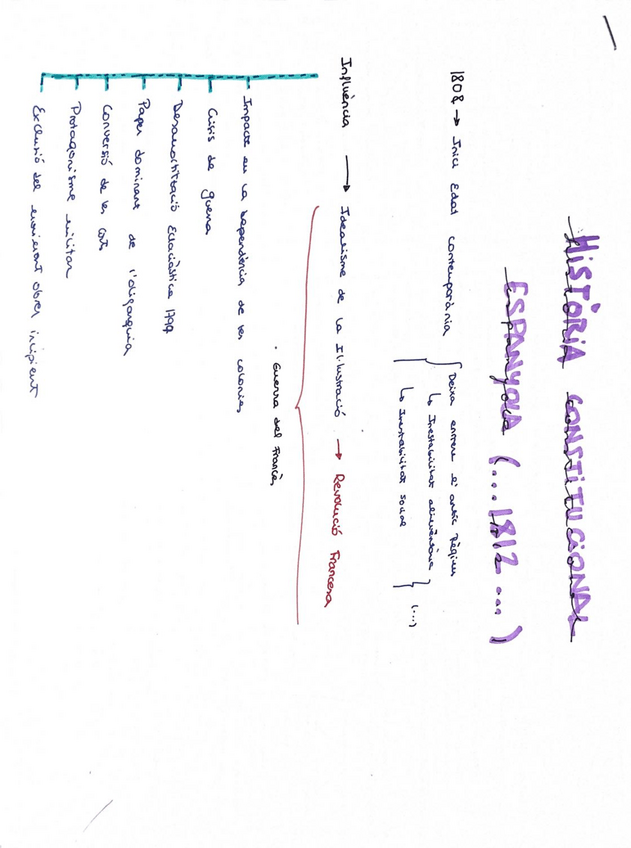 HISTÒRIA CONSTITUCIONAL
ESPANYOLA (...1812...)
1808 → Inici Edat contemporània
Deixa enrere l'antic Règim
↳ Inestabilitat alimentària
↳ Inestabilitat social
(...)
Influència → Idealisme de la Il·lustració → Revolució Francesa
· Guerra del Francès
Impacte en la dependència de les colonies
Crisis de guerra
Desamortització Eclesiàstica
Paper dominant de l'oligarquia
Conversió de les corts
Protagonisme militar
Exclusió del moviment obrer incipient